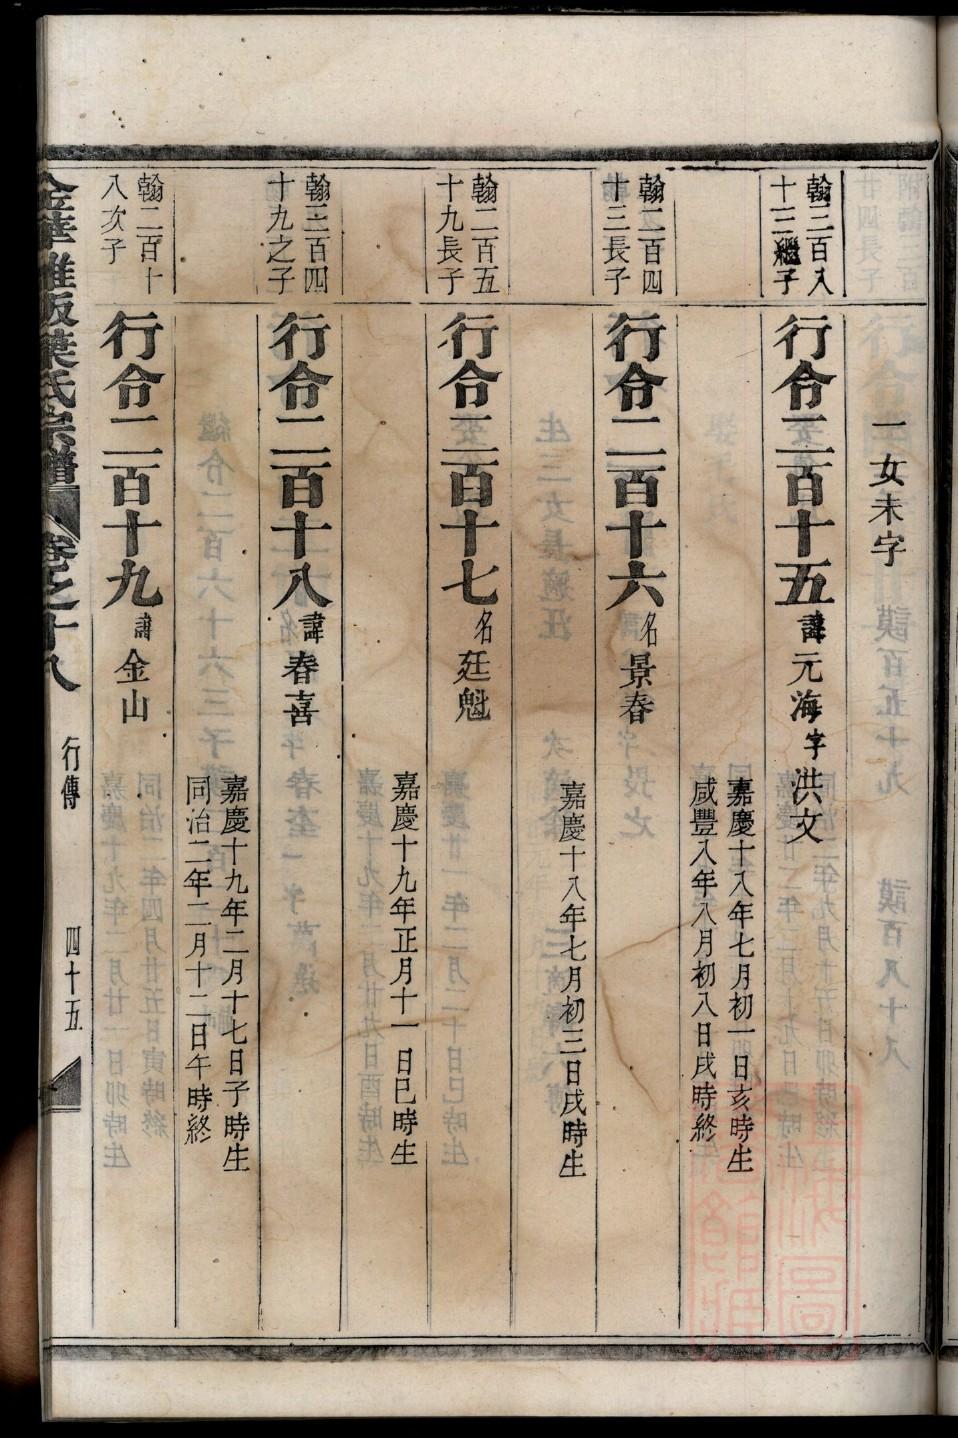 一女未字
翰二百八
十三繼子
行令二百十五 諱元海字洪文
嘉慶十八年七月初一日亥時生
咸豐八年八月初八日戌時終
翰二百四
十三長子
行令二百十六 名景春
嘉慶十八年七月初三日戌時生
翰二百五
十九長子
行令二百十七 名廷魁
嘉慶十九年正月十一日巳時生
翰二百四
十九之子
行令二百十八 諱春喜
嘉慶十九年二月十七日子時生
同治二年二月十二日午時終
翰二百十
八次子
行令二百十九 諱金山
葉氏宗譜 卷之十八 行傳 四十五